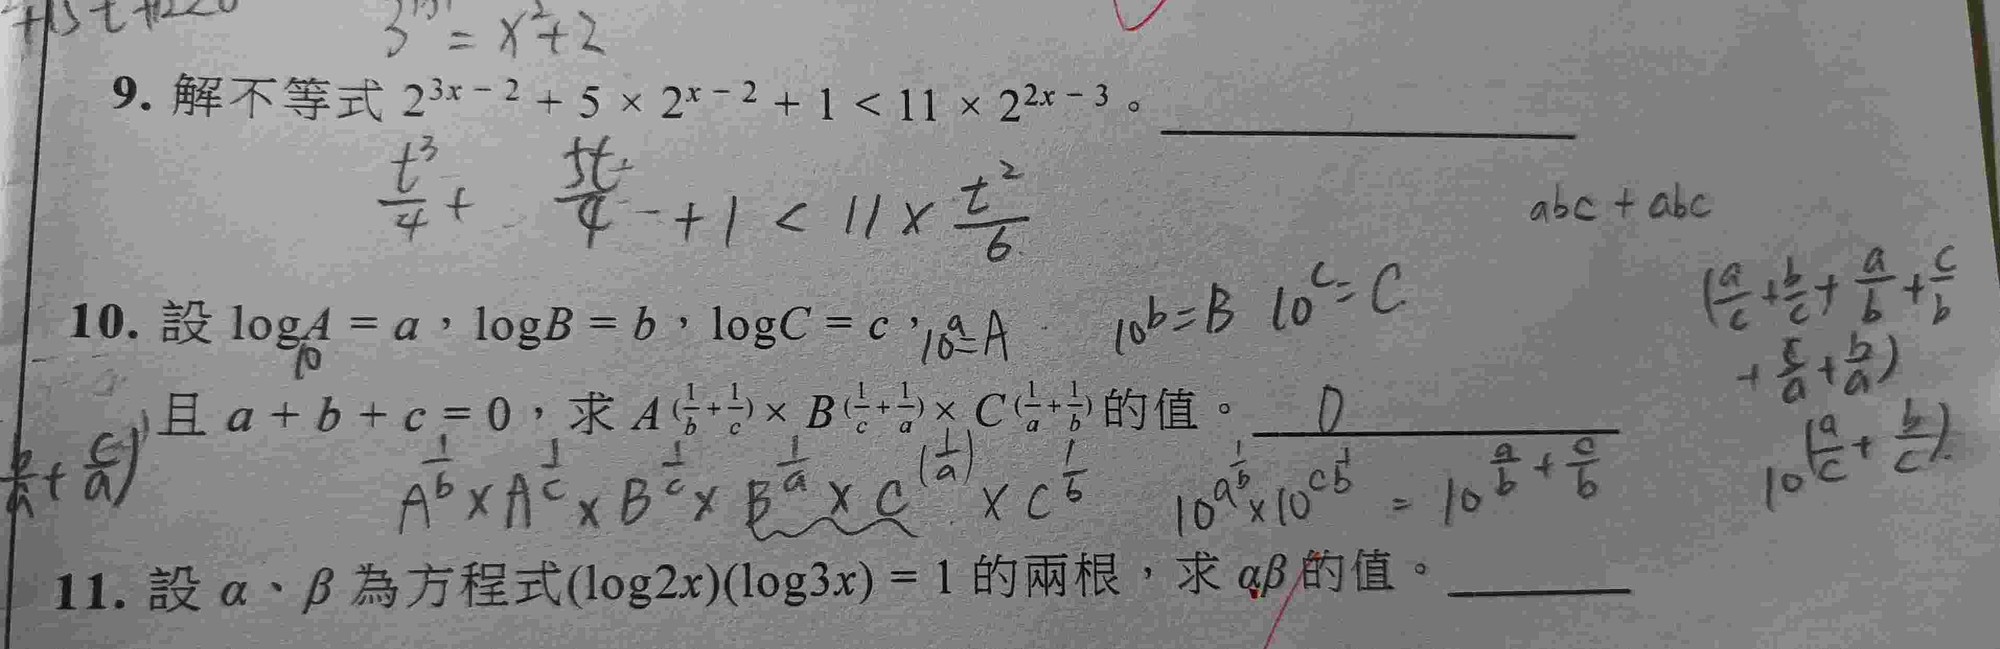 3 = x²+2
9. 解不等式 2^{3x-2} + 5 × 2^{x-2} + 1 < 11 × 2^{2x-3}。
t³/4 + 5t/4 + 1 < 11 × t²/6
abc + abc
10. 設 logA = a，logB = b，logC = c，10^a=A 10^b=B 10^c=C
10
(a/c + b/c + a/b + c/b
+ c/a + b/a)
且 a + b + c = 0，求 A^{(1/b+1/c)} × B^{(1/c+1/a)} × C^{(1/a+1/b)} 的值。 0
+ c/a)
A^{1/b} × A^{1/c} × B^{1/c} × B^{1/a} × C^{(1/a)} × C^{1/b}
10^{a 1/b} × 10^{c 1/b} = 10^{a/b + c/b}
10^{(a/c + b/c)}
11. 設 α、β 為方程式(log2x)(log3x) = 1 的兩根，求 αβ 的值。